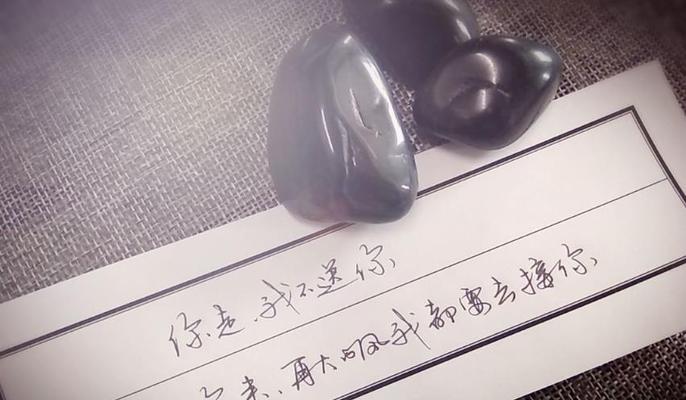 你走、我不送你
来、再大的风我都要去接你